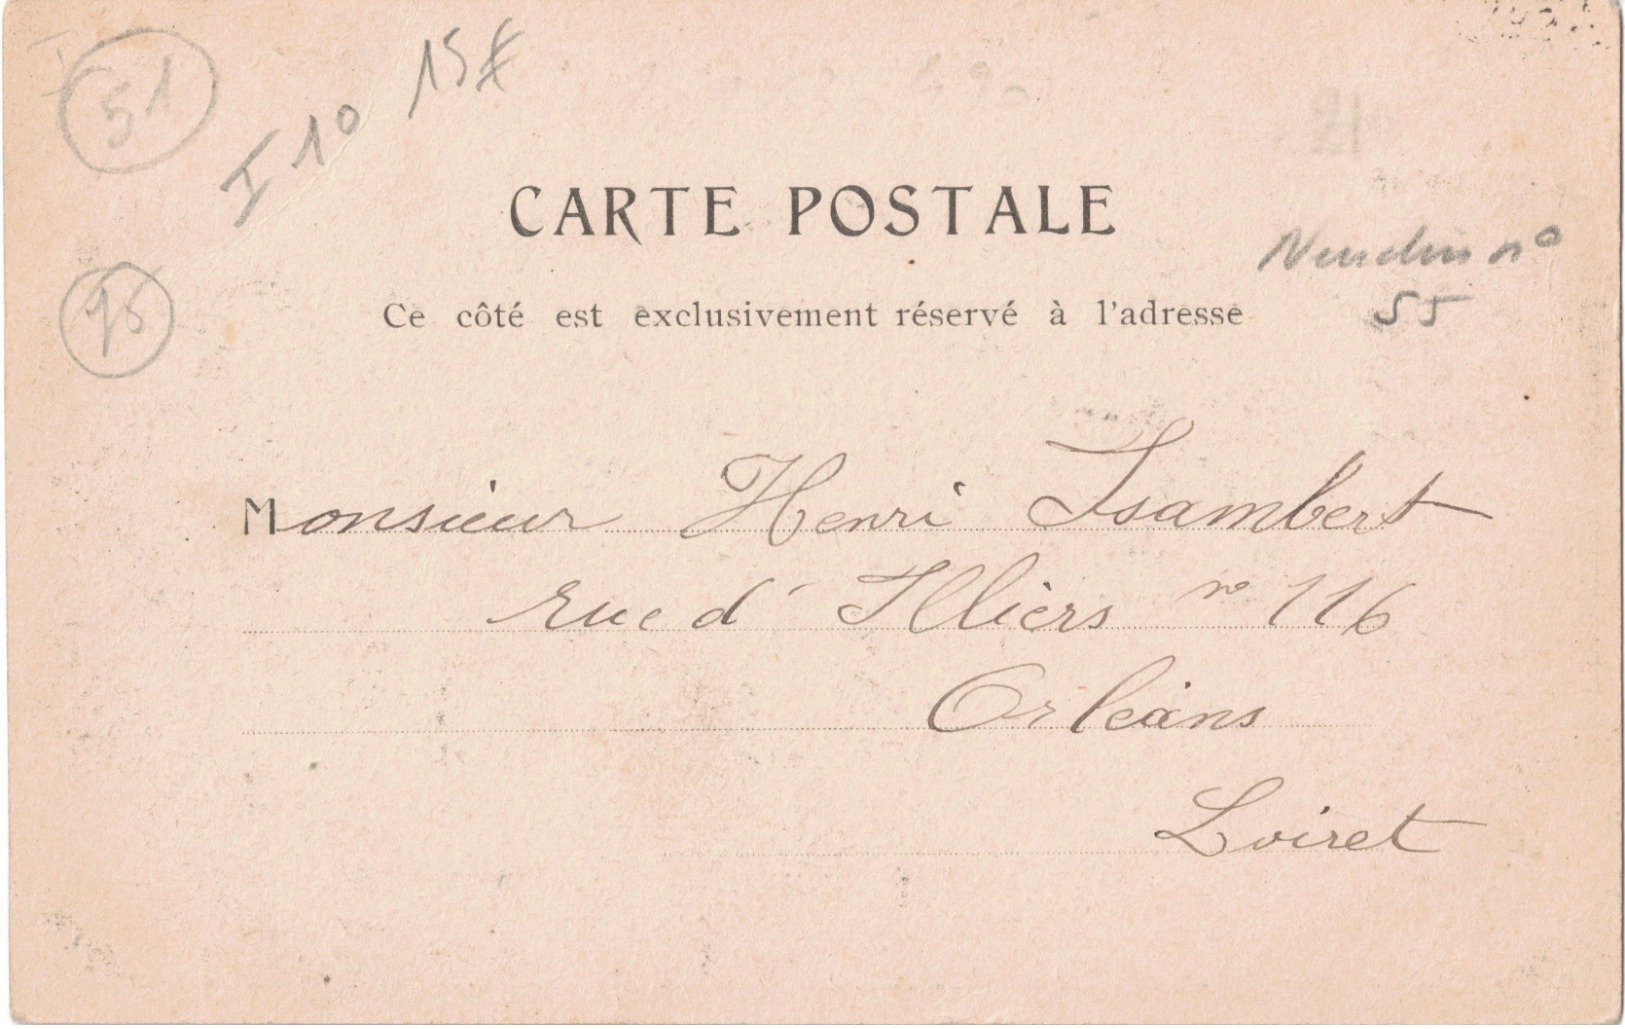 51
I 1° 15€
CARTE POSTALE
Neudin n°
55
95
Ce côté est exclusivement réservé à l'adresse
Monsieur Henri Isambert
rue d'Illiers n° 116
Orléans
Loiret